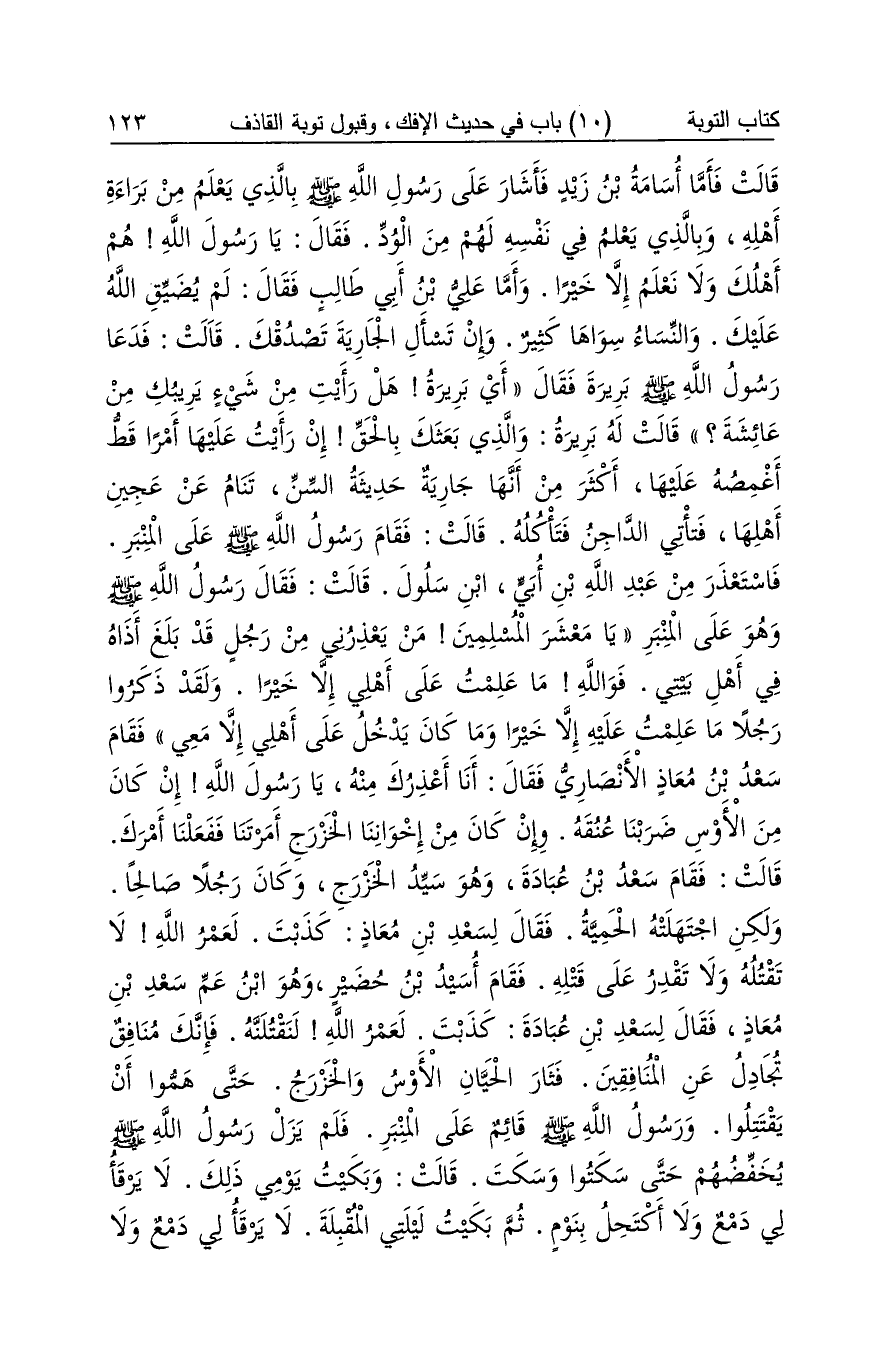 كتاب التوبة (١٠) باب في حديث الإفك، وقبول توبة القاذف ١٢٣
قَالَتْ فَأَمَّا أُسَامَةُ بْنُ زَيْدٍ فَأَشَارَ عَلَى رَسُولِ اللَّهِ ﷺ بِالَّذِي يَعْلَمُ مِنْ بَرَاءَةِ
أَهْلِهِ ، وَبِالَّذِي يَعْلمُ فِي نَفْسِهِ لَهُمْ مِنَ الْوُدِّ . فَقَالَ : يَا رَسُولَ اللَّهِ ! هُمْ
أَهْلُكَ وَلَا نَعْلَمُ إِلَّا خَيْرًا . وَأَمَّا عَلِيُّ بْنُ أَبِي طَالِبٍ فَقَالَ : لَمْ يُضَيِّقِ اللَّهُ
عَلَيْكَ . وَالنِّسَاءُ سِوَاهَا كَثِيرٌ . وَإِنْ تَسْأَلِ الْجَارِيَةَ تَصْدُقْكَ . قَاَلَتْ : فَدَعَا
رَسُولُ اللَّهِ ﷺ بَرِيرَةَ فَقَالَ « أَيْ بَرِيرَةُ ! هَلْ رَأَيْتِ مِنْ شَيْءٍ يَرِيبُكِ مِنْ
عَائِشَةَ ؟ » قَالَتْ لَهُ بَرِيرَةُ : وَالَّذِي بَعَثَكَ بِالْحَقِّ ! إِنْ رَأَيْتُ عَلَيْهَا أَمْرًا قَطُّ
أَغْمِصُهُ عَلَيْهَا ، أَكْثَرَ مِنْ أَنَّهَا جَارِيَةٌ حَدِيثَةُ السِّنِّ ، تَنَامُ عَنْ عَجِينِ
أَهْلِهَا ، فَتَأْتِي الدَّاجِنُ فَتَأْكُلُهُ . قَالَتْ : فَقَامَ رَسُولُ اللَّهِ ﷺ عَلَى الْمِنْبَرِ .
فَاسْتَعْذَرَ مِنْ عَبْدِ اللَّهِ بْنِ أُبَيٍّ ، ابْنِ سَلُولَ . قَالَتْ : فَقَالَ رَسُولُ اللَّهِ ﷺ
وَهُوَ عَلَى الْمِنْبَرِ « يَا مَعْشَرَ الْمُسْلِمِينَ ! مَنْ يَعْذِرُنِي مِنْ رَجُلٍ قَدْ بَلَغَ أَذَاهُ
فِي أَهْلِ بَيْتِي . فَوَاللَّهِ ! مَا عَلِمْتُ عَلَى أَهْلِي إِلَّا خَيْرًا . وَلَقَدْ ذَكَرُوا
رَجُلًا مَا عَلِمْتُ عَلَيْهِ إِلَّا خَيْرًا وَمَا كَانَ يَدْخُلُ عَلَى أَهْلِي إِلَّا مَعِي » فَقَامَ
سَعْدُ بْنُ مُعَاذٍ الْأَنْصَارِيُّ فَقَالَ : أَنَا أَعْذِرُكَ مِنْهُ ، يَا رَسُولَ اللَّهِ ! إِنْ كَانَ
مِنَ الْأَوْسِ ضَرَبْنَا عُنُقَهُ . وإِنْ كَانَ مِنْ إِخْوَانِنَا الْخَزْرَجِ أَمَرْتَنَا فَفَعَلْنَا أَمْرَكَ.
قَالَتْ : فَقَامَ سَعْدُ بْنُ عُبَادَةَ ، وَهُوَ سَيِّدُ الْخَزْرَجِ ، وَكَانَ رَجُلًا صَالِحًا .
وَلَكِنِ اجْتَهَلَتْهُ الْحَمِيَّةُ . فَقَالَ لِسَعْدِ بْنِ مُعَاذٍ : كَذَبْتَ . لَعَمْرُ اللَّهِ ! لَا
تَقْتُلُهُ وَلَا تَقْدِرُ عَلَى قَتْلِهِ . فَقَامَ أُسَيْدُ بْنُ حُضَيْرٍ ،وَهُوَ ابْنُ عَمِّ سَعْدِ بْنِ
مُعَاذٍ ، فَقَالَ لِسَعْدِ بْنِ عُبَادَةَ : كَذَبْتَ . لَعَمْرُ اللَّهِ ! لَنَقْتُلَنَّهُ . فَإِنَّكَ مُنَافِقٌ
تُجَادِلُ عَنِ الْمُنَافِقِينَ . فَثَارَ الْحَيَّانِ الْأَوْسُ وَالْخَزْرَجُ . حَتَّى هَمُّوا أَنْ
يَقْتَتِلُوا . وَرَسُولُ اللَّهِ ﷺ قَائِمٌ عَلَى الْمِنْبَرِ . فَلَمْ يَزَلْ رَسُولُ اللَّهِ ﷺ
يُخَفِّضُهُمْ حَتَّى سَكَتُوا وَسَكَتَ . قَالَتْ : وَبَكَيْتُ يَوْمِي ذَلِكَ . لَا يَرْقَأُ
لِي دَمْعٌ وَلَا أَكْتَحِلُ بِنَوْمٍ . ثُمَّ بَكَيْتُ لَيْلَتِي الْمُقْبِلَةَ . لَا يَرْقَأُ لِي دَمْعٌ وَلَا